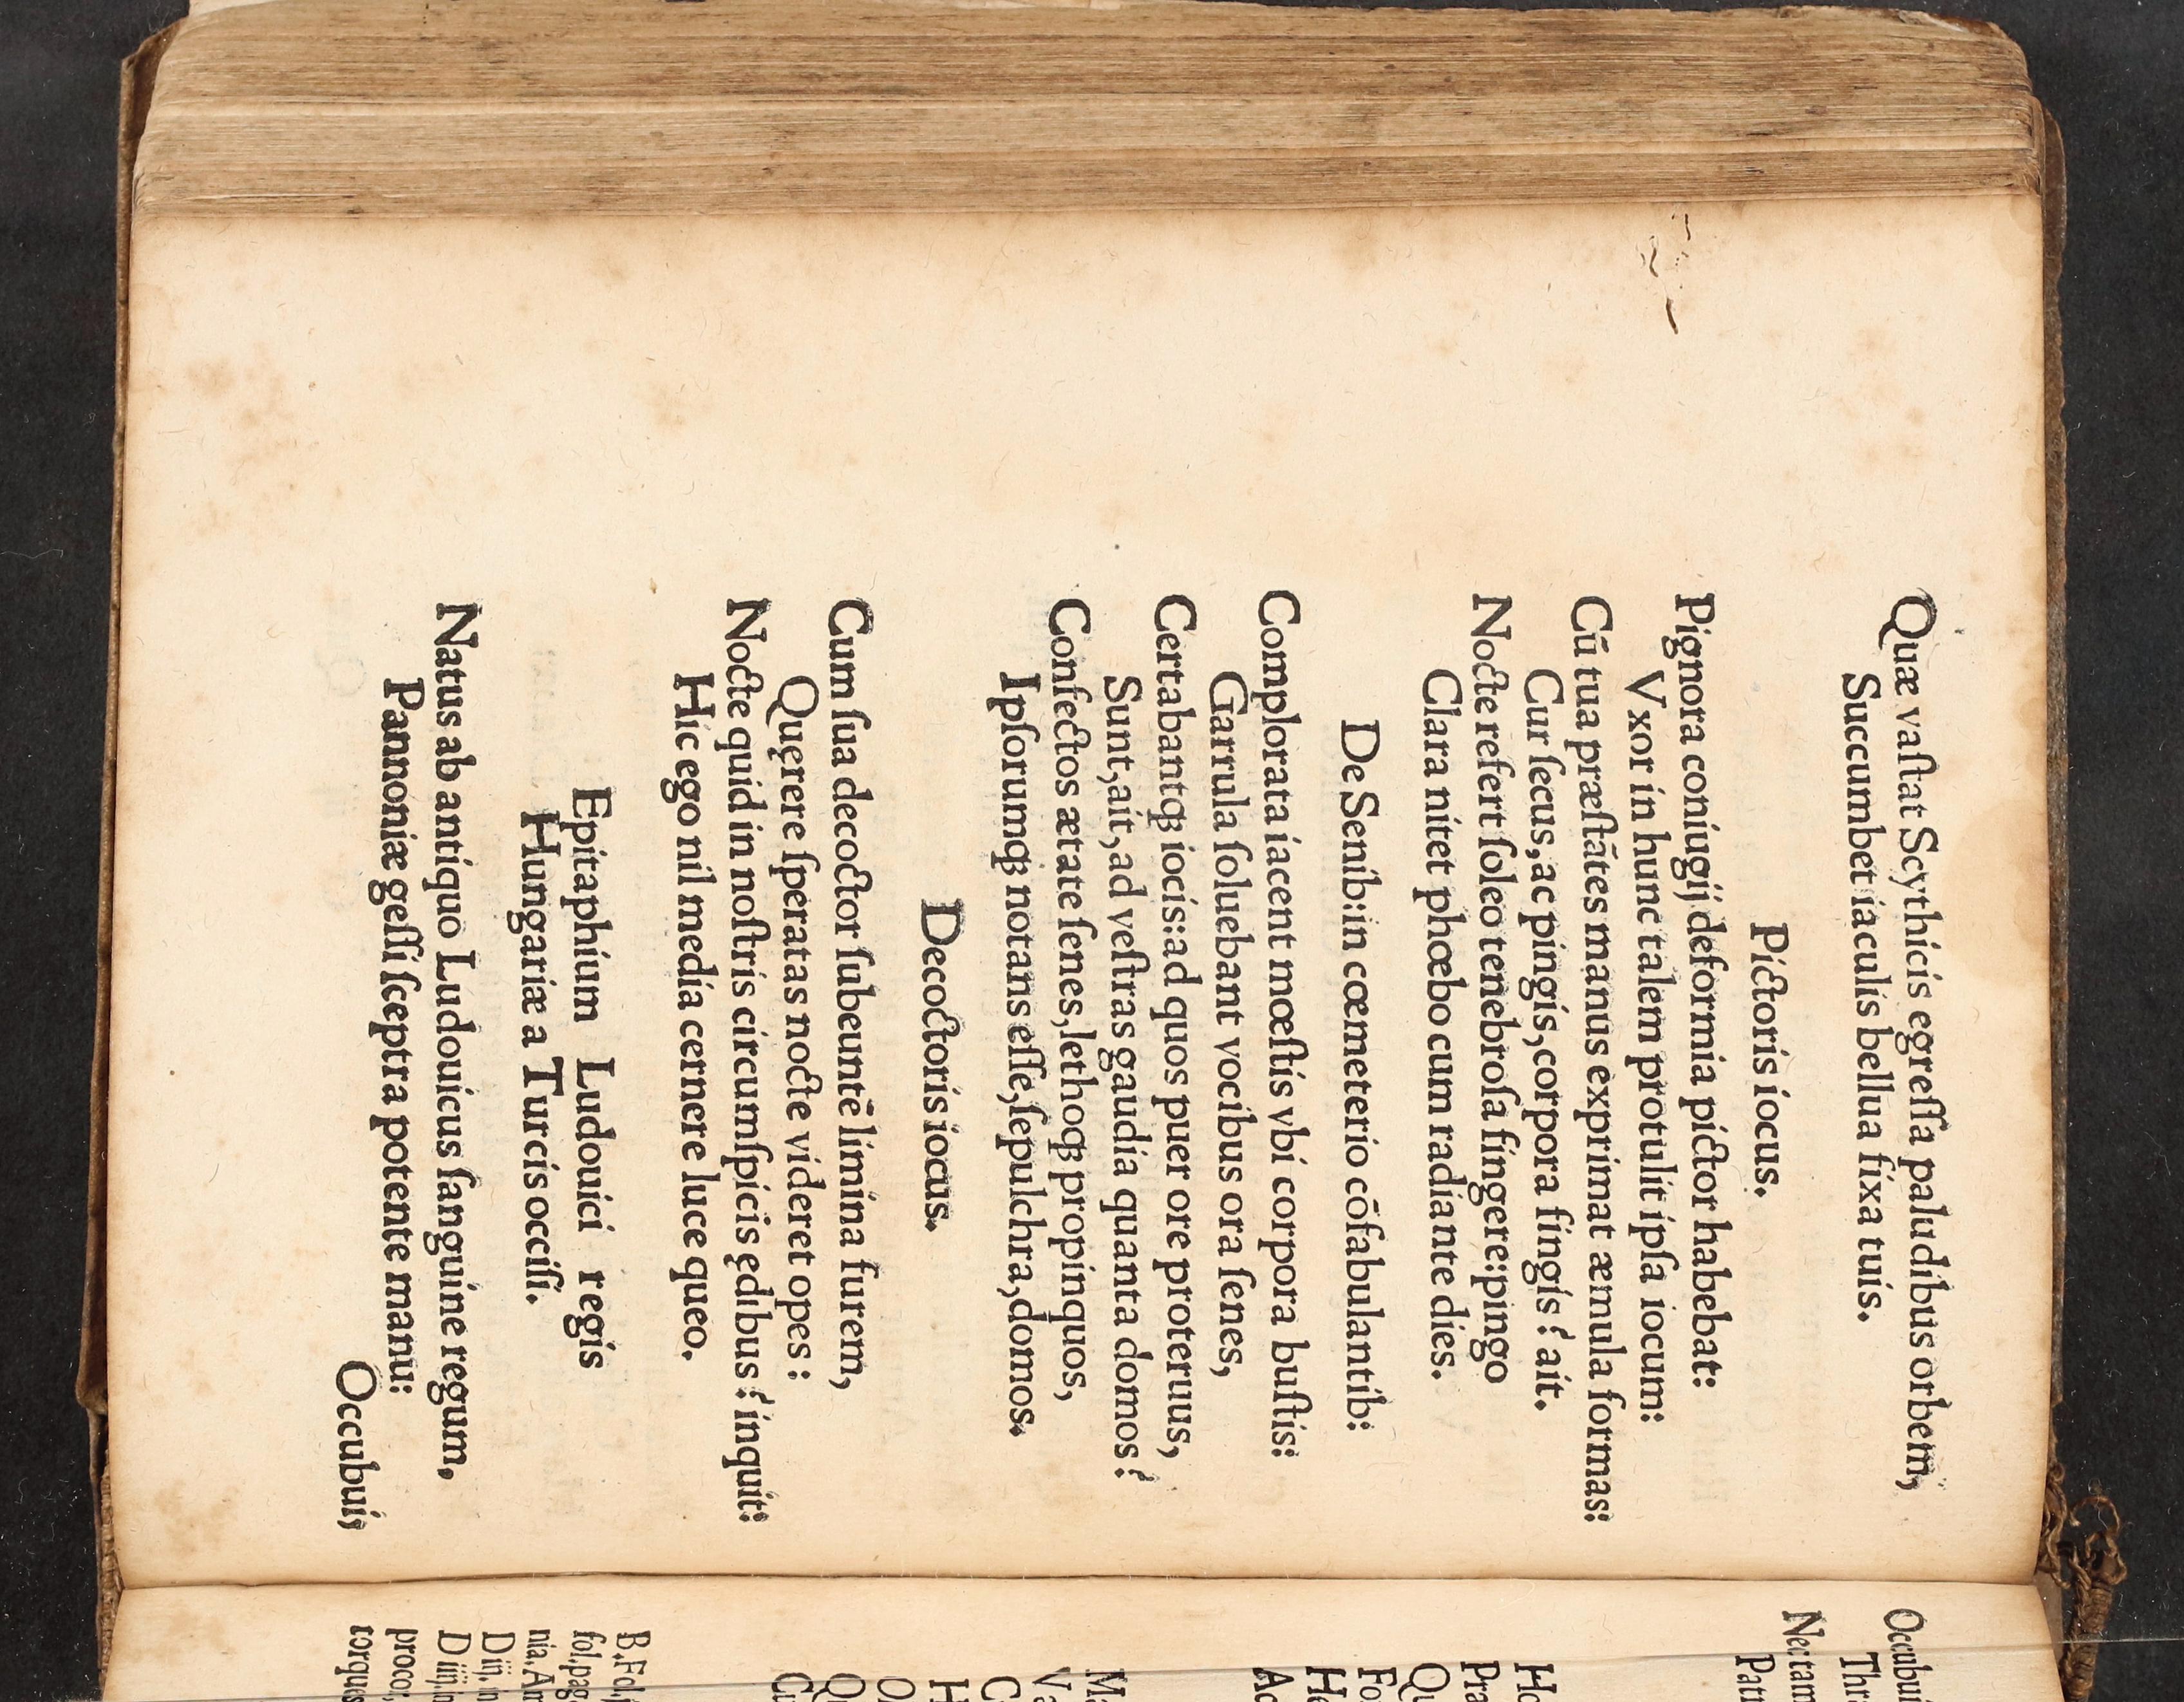 Quæ vaſtat Scythicis egreſſa paludibus orbem,
Succumbet iaculis bellua fixa tuis.
Pictoris iocus.
Pignora coniugij deformia pictor habebat:
Vxor in hunc talem protulit ipſa iocum:
Cū tua præſtātes manus exprimat æmula formas:
Cur ſecus, ac pingis, corpora fingis? ait.
Nocte refert ſoleo tenebroſa fingere: pingo
Clara nitet phœbo cum radiante dies.
De Senib: in cœmeterio cōfabulantib:
Complorata iacent mœſtis vbi corpora buſtis:
Garrula ſoluebant vocibus ora ſenes,
Certabantqꝫ iocis: ad quos puer ore proteruus,
Sunt, ait, ad veſtras gaudia quanta domos?
Confectos ætate ſenes, lethoqꝫ propinquos,
Ipſorumqꝫ notans eſſe, ſepulchra, domos.
Decoctoris iocus.
Cum ſua decoctor ſubeuntē limina furem,
Quęrere ſperatas nocte videret opes:
Nocte quid in noſtris circumſpicis ędibus? inquit:
Hic ego nil media cernere luce queo.
Epitaphium Ludouici regis
Hungariæ a Turcis occiſi.
Natus ab antiquo Ludouicus ſanguine regum,
Pannoniæ geſſi ſceptra potente manu:
Occubui,
Occubui
Thra
Nec tam
Patri
Ho
Pra
Qu
Fo
He
Ac
Ma
Va
C
H
O
Qu
Cu
B. Fol.
fol. pag.
nia. Am
D iij. in
D iiij. in
proco:
torques